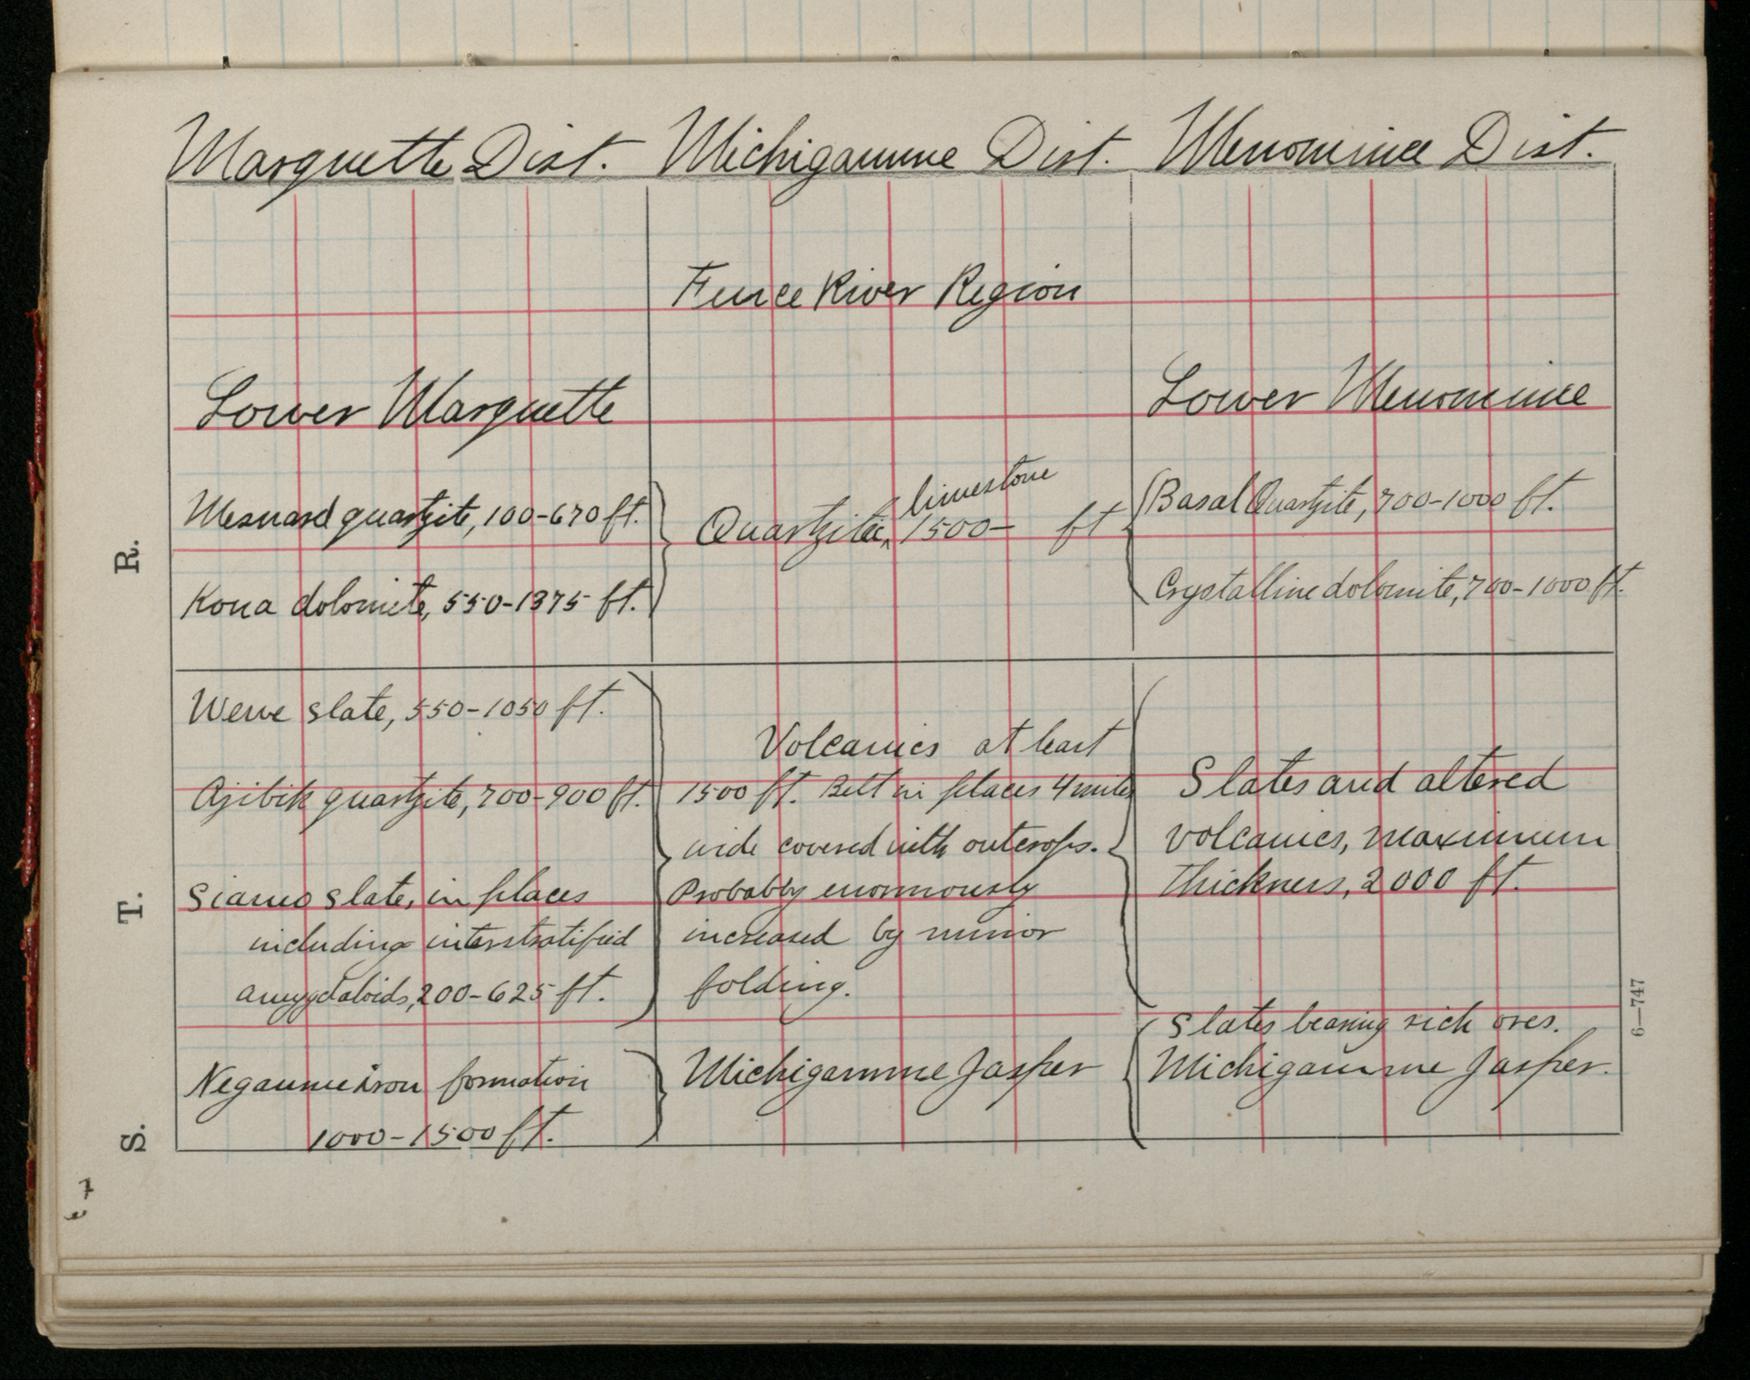 Marquette Dist. Michigamme Dist. Menominee Dist.
Fence River Region
Lower Marquette
Lower Menominee
Mesnard quartzite, 100-670 ft.
Quartzite, limestone 1500- ft
Basal Quartzite, 700-1000 ft.
Kona dolomite, 550-1375 ft.
Crystalline dolomite, 700-1000 ft.
R.
Wewe slate, 550-1050 ft.
Ajibik quartzite, 700-900 ft.
Siamo slate, in places
including interstratified
amygdaloids, 200-625 ft.
Volcanics at least
1500 ft. Belt in places 4 miles
wide covered with outcrops.
Probably enormously
increased by minor
folding.
Slates and altered
volcanics, maximum
thickness, 2000 ft.
T.
Negaunee iron formation
1000-1500 ft.
Michigamme Jasper
Slates bearing rich ores.
Michigamme Jasper.
S.
6—747